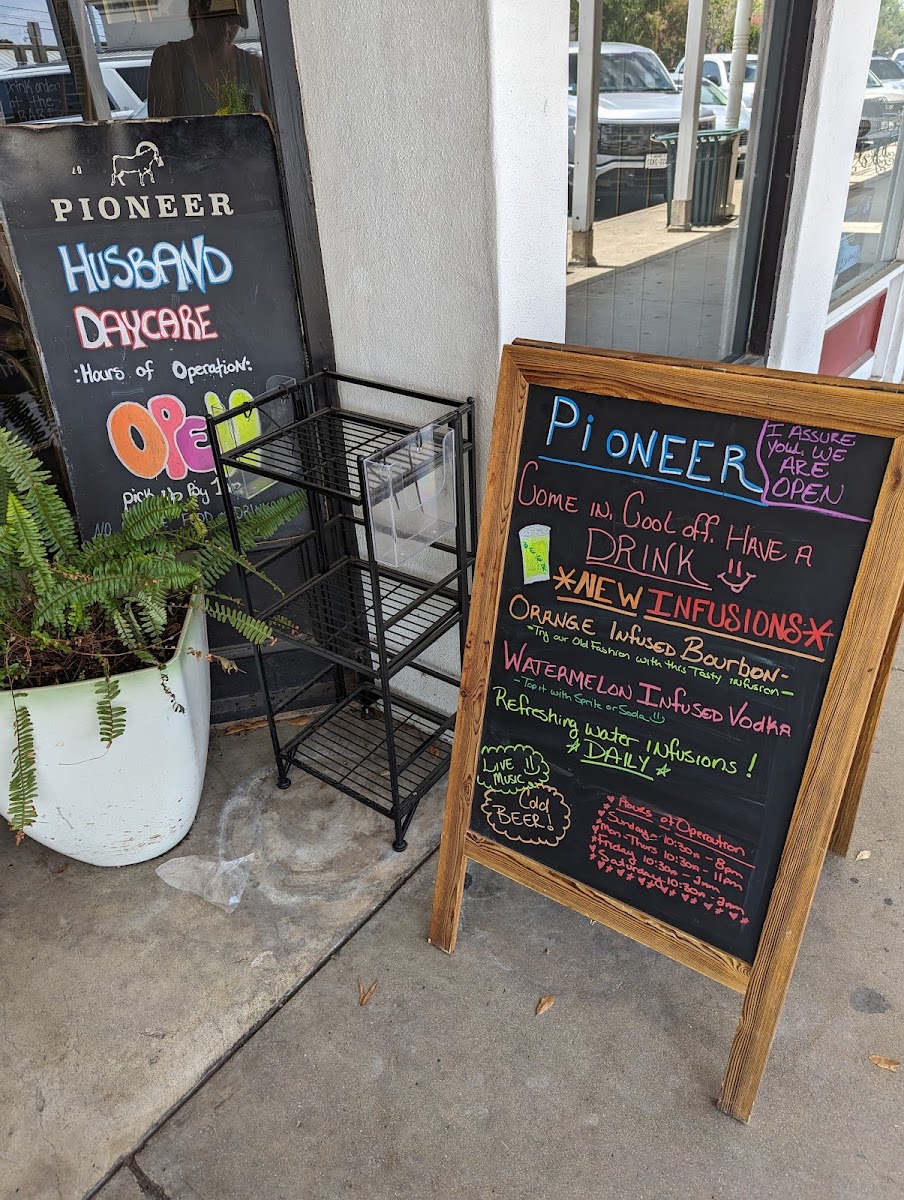 Drink order
at the
BAR
PIONEER
HUSBAND
DAYCARE
:Hours of Operation:
OPEN
Pick up by
NO
FOOD
DRINK
PiONEER
I ASSURE
YOU, WE
ARE
OPEN
COME IN, COOL OFF. HAVE A
DRINK
*NEW INFUSIONS*
ORANGE INFUSED BOURBON-
-Try our Old Fashion with this Tasty infusion-
WATERMELON INFUSED VODKA
-Top it with Sprite or Soda
Refreshing Water INfusions!
DAILY
LIVE
MUSIC
Cold
BEER!
Hours of Operation
Sunday - 10:30a - 8pm
Mon-Thurs 10:30a - 11pm
Friday 10:30a - 2am
Saturday 10:30a - 2am